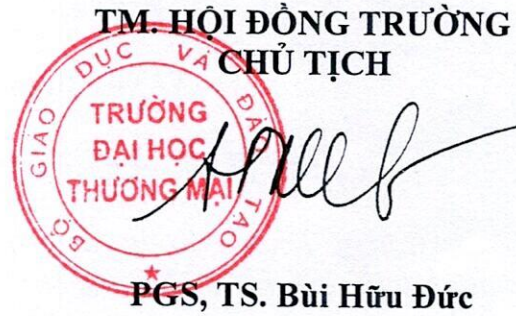 TM. HỘI ĐỒNG TRƯỜNG
CHỦ TỊCH
BỘ GIÁO DỤC VÀ ĐÀO TẠO
TRƯỜNG
ĐẠI HỌC
THƯƠNG MẠI
PGS, TS. Bùi Hữu Đức